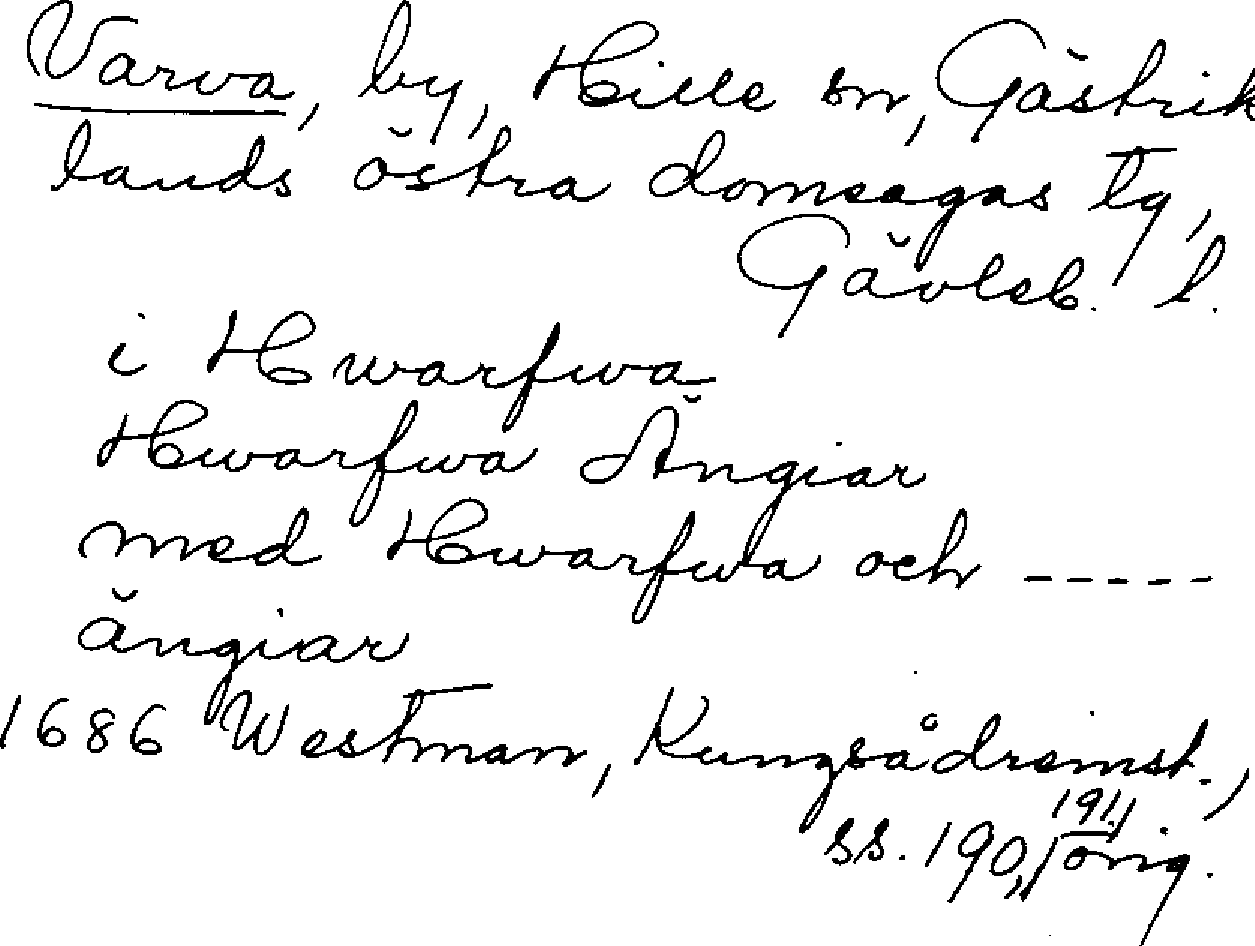 Varva, by, Hille sn, Gästrik
lands östra domsagas tg,
Gävleb. l.
i Hwarfwa
Hwarfwa Ängiar
med Hwarfwa och -----
ängiar
1686 Westman, Kungsådremst.,
ss. 190, 191, orig.